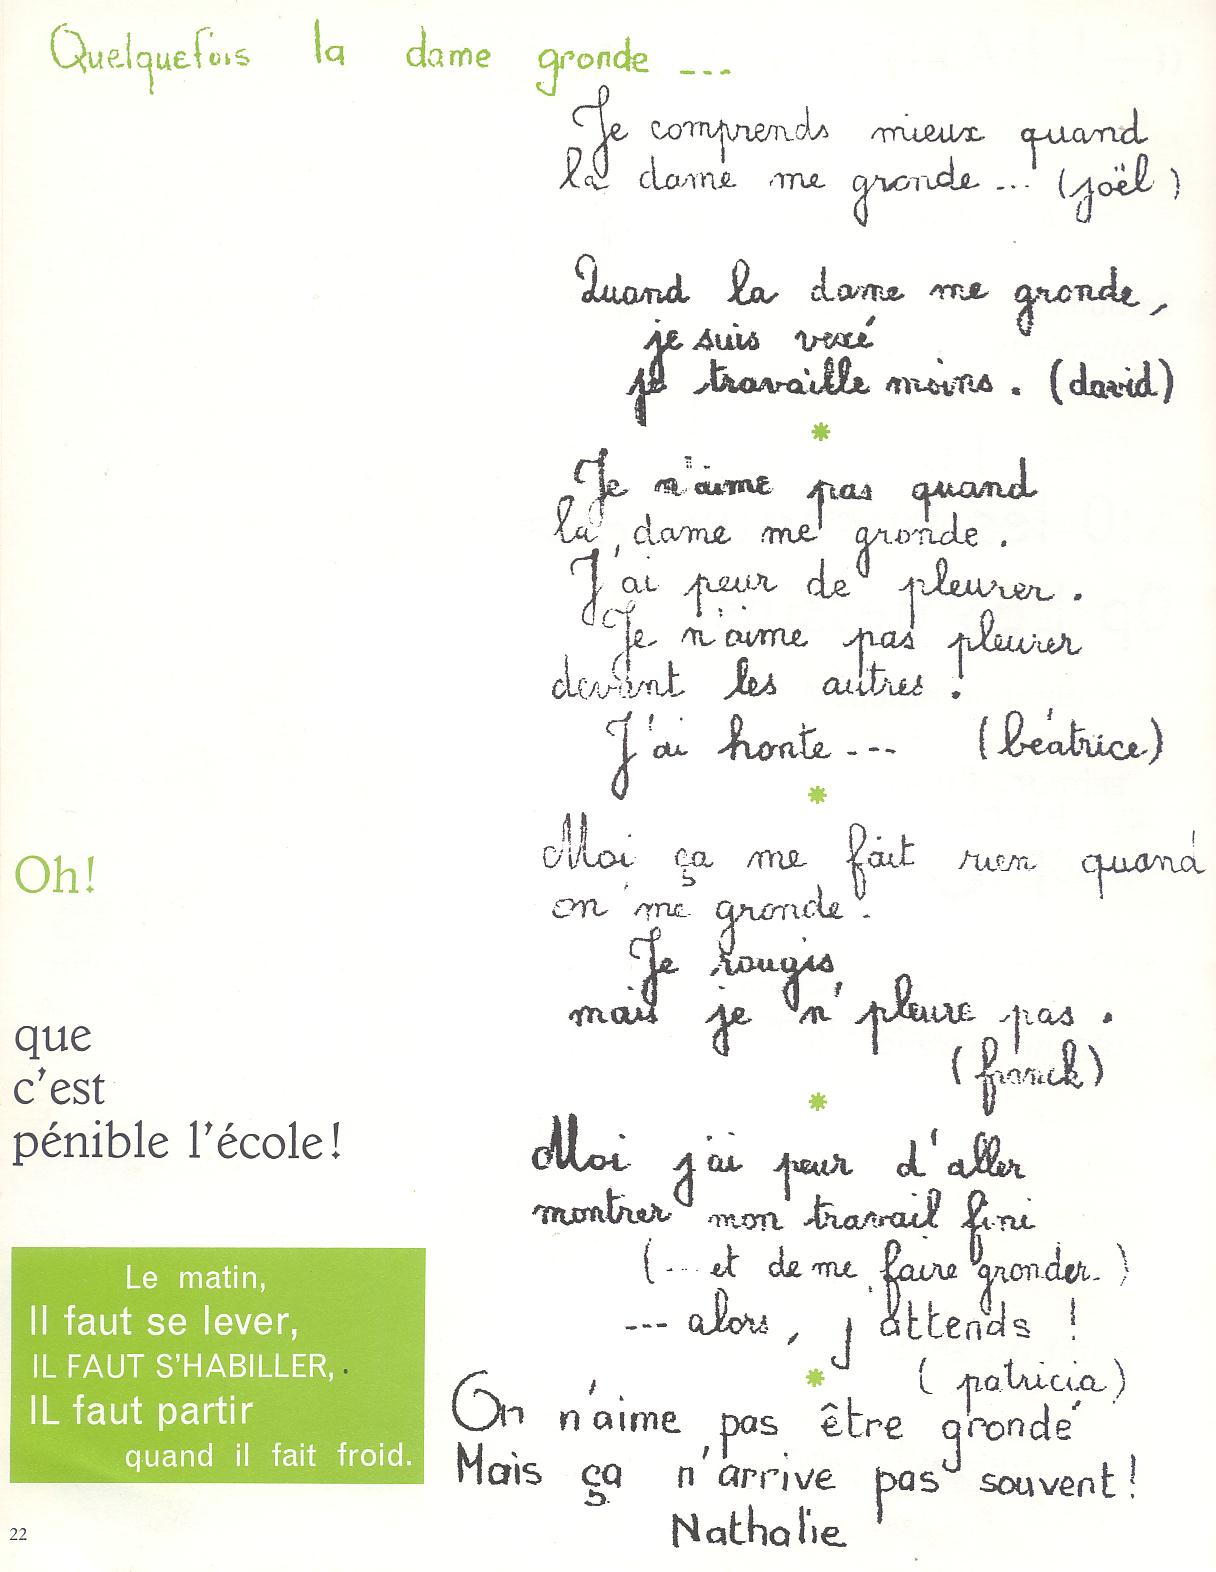 Quelquefois la dame gronde ...
Je comprends mieux quand
la dame me gronde ... (joël)
Quand la dame me gronde,
je suis vexé
je travaille moins. (david)
*
Je n'aime pas quand
la dame me gronde.
J'ai peur de pleurer.
Je n'aime pas pleurer
devant les autres.
J'ai honte --- (béatrice)
*
Moi ça me fait rien quand
on me gronde.
Je rougis
mais je n' pleure pas.
(franck)
*
Moi j'ai peur d'aller
montrer mon travail fini
(... et de me faire gronder.)
--- alors, j'attends !
*
(patricia)
On n'aime pas être grondé
Mais ça n'arrive pas souvent!
Nathalie
Oh!
que
c'est
pénible l'école!
Le matin,
Il faut se lever,
IL FAUT S'HABILLER,
IL faut partir
quand il fait froid.
22